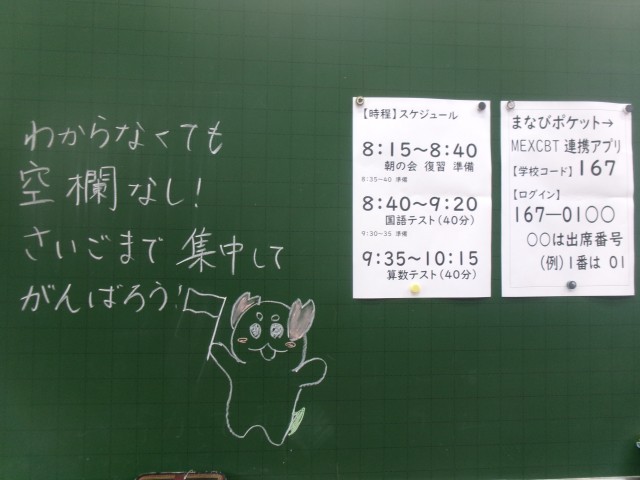 わからなくても
空欄なし!
さいごまで集中して
がんばろう!
【時程】スケジュール
8:15～8:40
朝の会 復習 準備
8:35-40 準備
8:40～9:20
国語テスト(40分)
9:30-35 準備
9:35～10:15
算数テスト(40分)
まなびポケット→
MEXCBT 連携アプリ
【学校コード】167
【ログイン】
167―01〇〇
〇〇は出席番号
(例)1番は 01